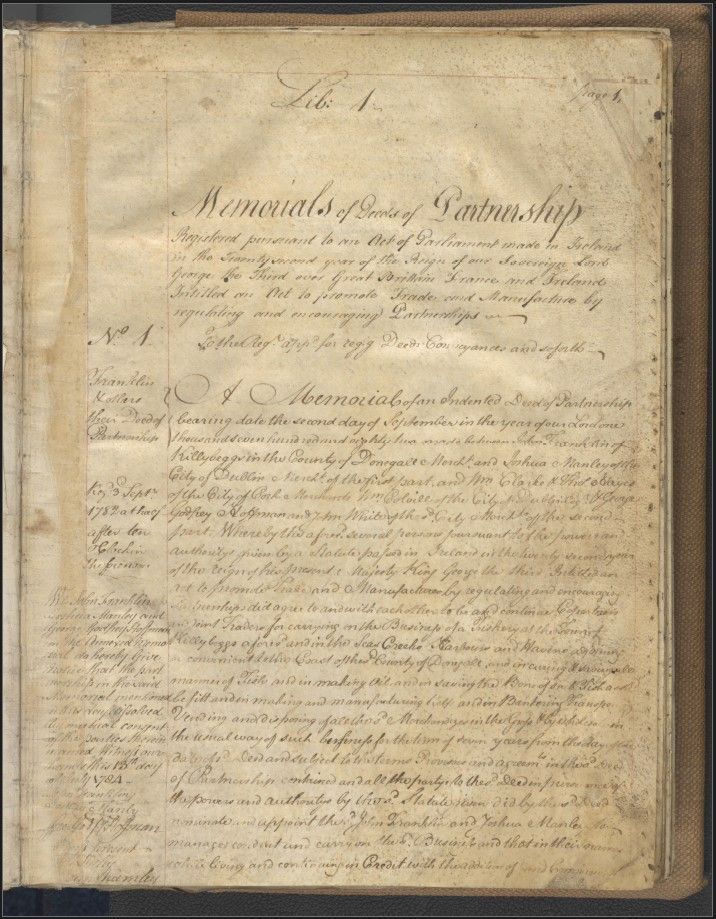 Lib: 1
page 1,
Memorials of Deeds of Partnership
Registered pursuant to an Act of Parliament made in Ireland
in the Twenty second year of the Reign of our Sovereign Lord
George the Third over Great Brittain France and Ireland
Intitled an Act to promote Trade and Manufacture by
regulating and encouraging Partnerships
No. 1
To the Regr. appd. for regg Deeds Conveyances and so forth
Franklin
& others
their Deed of
Partnership
Regd. 3 Septr.
1782 at half
after ten
OClock in
the forenoon
A Memorial of an Indented Deed of Partnership
bearing date the second day of September in the year of our Lord one
thousand seven hundred and eighty two made between John Franklin of
Killybeggs in the County of Donegall Mercht. and Joshua Manley of the
City of Dublin Mercht. of the first part, and Wm. Clarke & Thos. Sayes
of the City of Cork Merchants Wm. Colvill of the City of Dublin & George
Godfrey Hoffman and Jno. Whiting the sd. City Merchts. of the second
part. Whereby the aforesd. several persons pursuant to the power and
Authority given by a Statute passed in Ireland in the twenty second year
of the reign of his present Majesty King George the third Intitled an
Act to promote Trade and Manufacture by regulating and encouraging
Partnerships did agree to and with each other to be and continue Copartners
and joint Traders for carrying on the Business of a Fishery at the Town of
Killybeggs aforesd. and in the Seas Creeks Harbours and Havens adjoining
& convenient to the Coast of the sd. County of Donegall, and in curing & saving all
manner of Fish and in making Oil and in saving the Bones of such Fish as shall
be fitt and in making and manufacturing and in Bartering Transpg.
Vending and disposing of all the sd. Merchandizes in the Gross & by whole sale in
the usual way of such business for the term of seven years from the day
date of the sd. Deed and subject to the terms Provisoes and agreemts. in the sd. Deed
of Partnership contained and all the partys to the sd. Deed in pursuance of
the powers and authoritys by the sd. Statute given did by the sd. Deed
nominate and appoint the sd. John Franklin and Joshua Manley to
manage conduct and carry on the sd. Business and that in their names
while living and continuing in Credit with the addition of and Company
We John Franklin
Joshua Manley and
George Godfrey Hoffman
in the annexed Memo
rial do hereby Give
notice that the part
nership in the said
Memorial mentioned
is this day dissolved
by mutual consent
of the parties therein
named Witness our
hands this 13th. day
of July 1784
John Franklin
Joshua Manly
George Gf. Hoffman
present